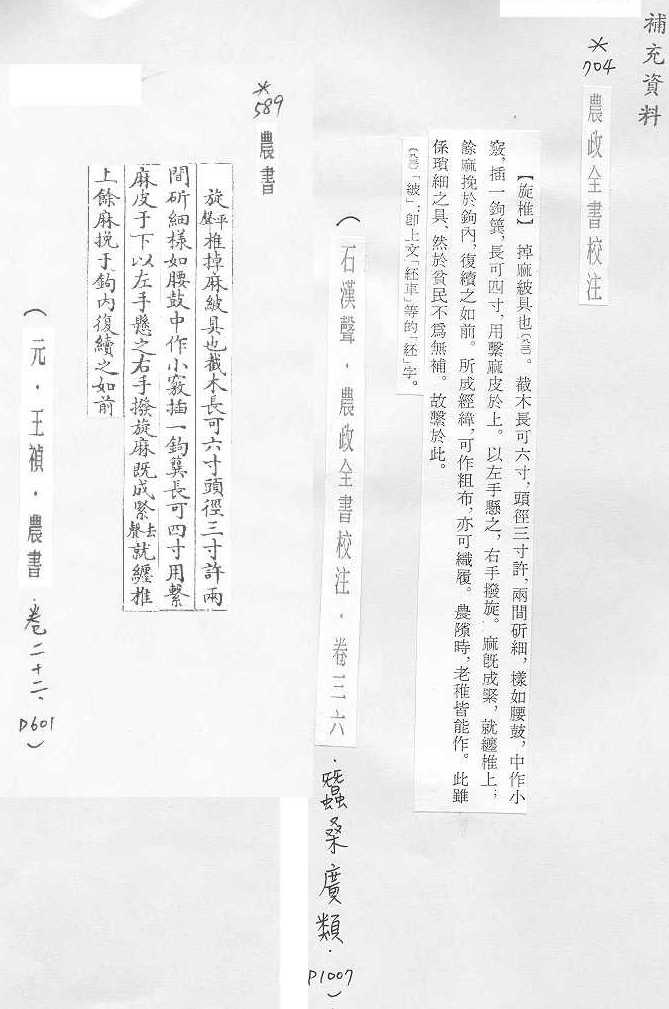 補充資料
*704
農政全書校注
【旋椎】　掉麻紴具也〔八三〕。截木長可六寸，頭徑三寸許，兩間斫細，樣如腰鼓，中作小
竅，插一鉤簨，長可四寸，用繫麻皮於上。以左手懸之，右手撥旋。麻旣成緊，就纏椎上；
餘麻挽於鉤內，復續之如前。所成經緯，可作粗布，亦可織履。農隙時，老稚皆能作。此雖
係瑣細之具，然於貧民不爲無補。故繫於此。
「紴」：卽上文「紝車」等的「紝」字。
（石漢聲．農政全書校注．卷三六．蠶桑廣類．P1007）
*589
農書
旋平聲椎掉麻紴具也截木長可六寸頭徑三寸許兩
間斫細樣如腰鼓中作小竅插一鉤簨長可四寸用繫
麻皮于下以左手懸之右手撥旋麻旣成緊去聲就纏椎
上餘麻挽于鉤内復續之如前
（元．王禎．農書．卷二十二、P601）